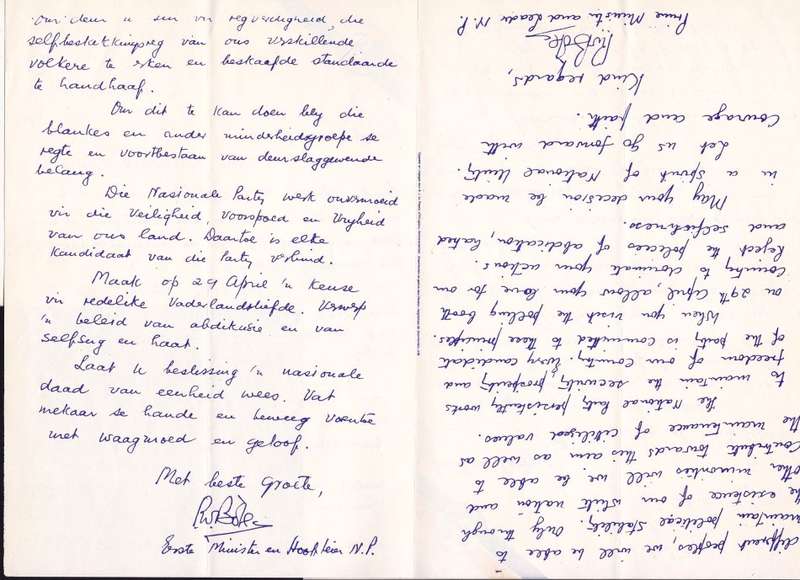 deur 'n sin vir regverdigheid, die
selfbeskikkingsreg van ons verskillende
volkere te erken en beskaafde standaarde
te handhaaf.
Om dit te kan doen bly die
blankes en ander minderheidsgroepe se
regte en voortbestaan van deurslaggewende
belang.
Die Nasionale Party werk onvermoeid
vir die Veiligheid, voorspoed en Vryheid
van ons land. Daartoe is elke
Kandidaat van die Party verbind.
Maak op 29 April 'n keuse
vir redelike Vaderlandsliefde. Verwerp
'n beleid van abdikasie en van
selfsug en haat.
Laat U beslissing 'n nasionale
daad van eenheid wees. Vat
mekaar se hande en beweeg voentoe
met waagmoed en geloof.
Met beste Groete,
P.W. Botha
Eerste Minister en Hoofleier N.P.
different peoples, we will be able to
maintain political stability. Only through
the existence of our white nation and
other minorities will we be able to
contribute towards this aim as well as
the maintenance of civilized values.
The National Party persistently works
to maintain the security, prosperity and
freedom of our country. Every candidate
of the party is committed to these principles.
When you visit the polling booth
on 29th April, allow your love for our
country to dominate your actions.
Reject the policies of abdication, hatred
and selfishness.
May your decision be made
in a spirit of National Unity.
Let us go forward with
Courage and faith.
Kind regards,
P.W. Botha
Prime Minister and Leader N.P.